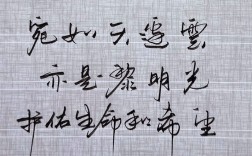 宛如天边云
亦是黎明光
护佑生命和希望